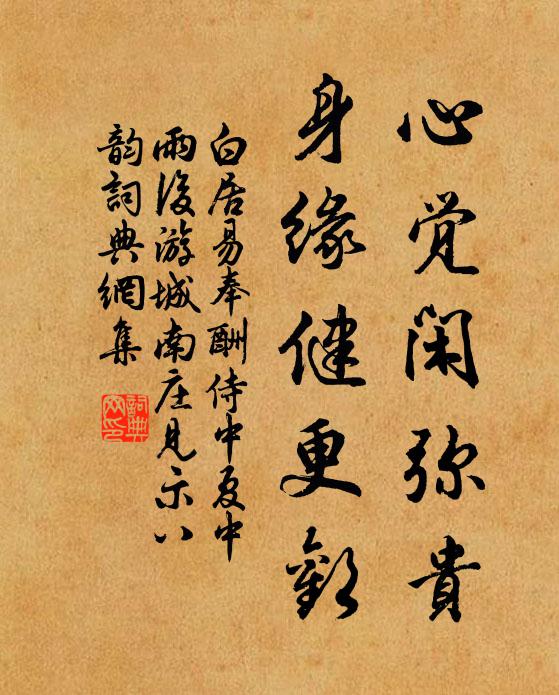 心觉闲弥贵
身缘健更欢
白居易奉酬侍中夏中
雨後游城南庄見示八
韵詞典網集
詞典
网印